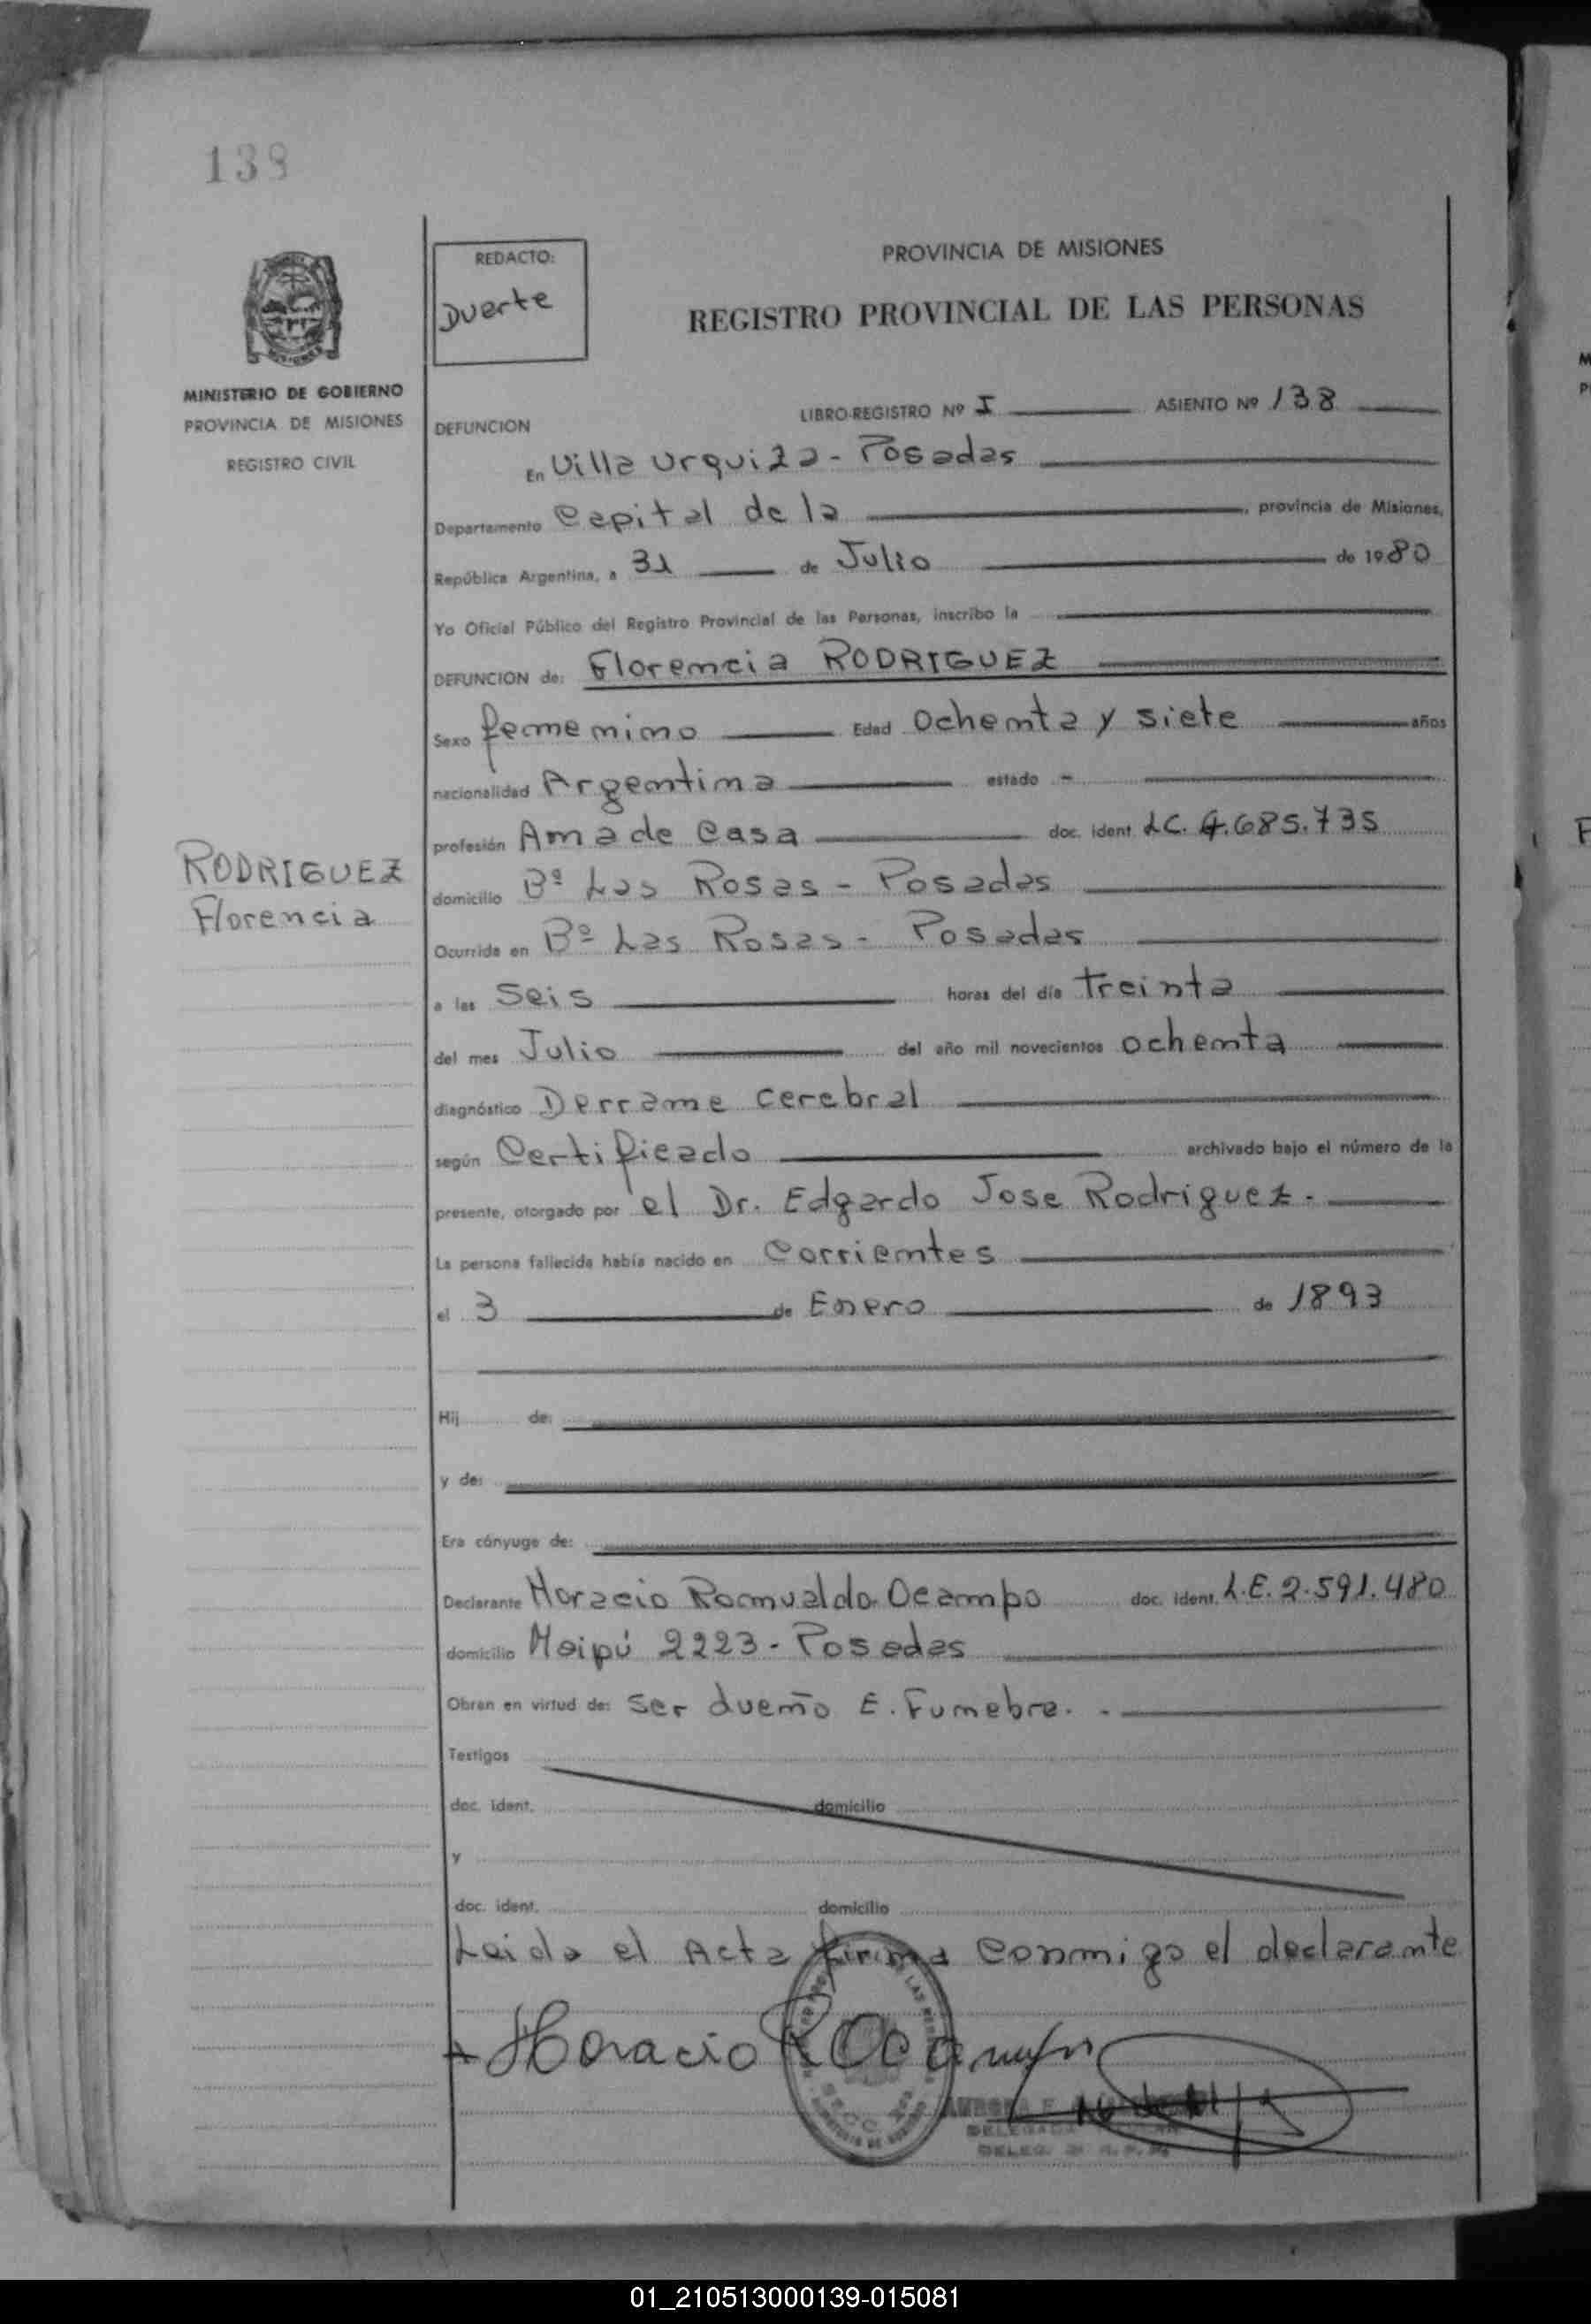 138
REDACTO:
Duarte
PROVINCIA DE MISIONES
REGISTRO PROVINCIAL DE LAS PERSONAS
MINISTERIO DE GOBIERNO
PROVINCIA DE MISIONES
REGISTRO CIVIL
LIBRO-REGISTRO Nº I ASIENTO Nº 138
DEFUNCION
En Villa Urquiza - Posadas
Departamento Capital de la, provincia de Misiones,
República Argentina, a 31 de Julio de 1980
Yo Oficial Público del Registro Provincial de las Personas, inscribo la
DEFUNCION de: Florencia RODRIGUEZ
Sexo femenino Edad Ochenta y siete años
nacionalidad Argentina estado -
profesión Ama de Casa doc. ident. LC. 4.685.735
RODRIGUEZ
Florencia
domicilio Bº Las Rosas - Posadas
Ocurrida en Bº Las Rosas - Posadas
a las Seis horas del día treinta
del mes Julio del año mil novecientos ochenta
diagnóstico Derrame cerebral
según Certificado archivado bajo el número de la
presente, otorgado por el Dr. Edgardo Jose Rodriguez.
La persona fallecida había nacido en Corrientes
el 3 de Enero de 1893
Hij de:
y de:
Era cónyuge de:
Declarante Horacio Romualdo Ocampo doc. ident. L.E. 2.591.480
domicilio Maipú 2223 - Posadas
Obran en virtud de: ser dueño E. Funebre. -
Testigos
doc. ident. domicilio
y
doc. ident. domicilio
Leida el Acta firma conmigo el declarante
Horacio R Ocampo
DELEGADA
DELEG.
01_210513000139-015081